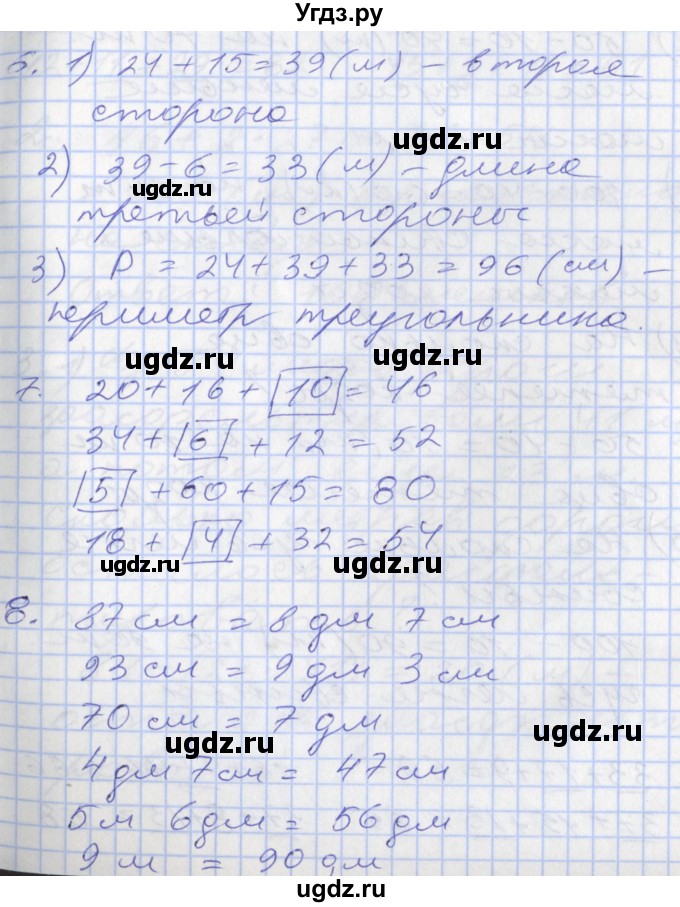 Угдз.ру
6. 1) 24 + 15 = 39 (м) – вторая
сторона
ugdz.ru
2) 39 – 6 = 33 (м) – длина
ugdz.ru
третьей стороны
3) P = 24 + 39 + 33 = 96 (см) –
периметр треугольника.
ugdz.ru ugdz.ru
7. 20 + 16 + 10 = 46
34 + 6 + 12 = 52
5 + 60 + 15 = 80
18 + 4 + 32 = 54
ugdz.ru ugdz.ru
8. 87 см = 8 дм 7 см
93 см = 9 дм 3 см
70 см = 7 дм
ugdz.ru ugdz.ru
4 дм 7 см = 47 см
5 м 6 дм = 56 дм
9 м = 90 дм
ugdz.ru ugdz.ru